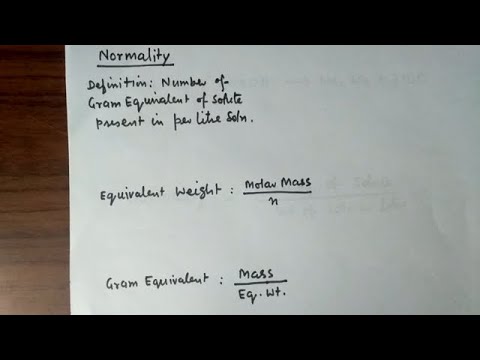 Normality
Definition: Number of
Gram Equivalent of Solute
present in per litre Soln.
Equivalent Weight : Molar Mass
n
Gram Equivalent : Mass
Eq. Wt.